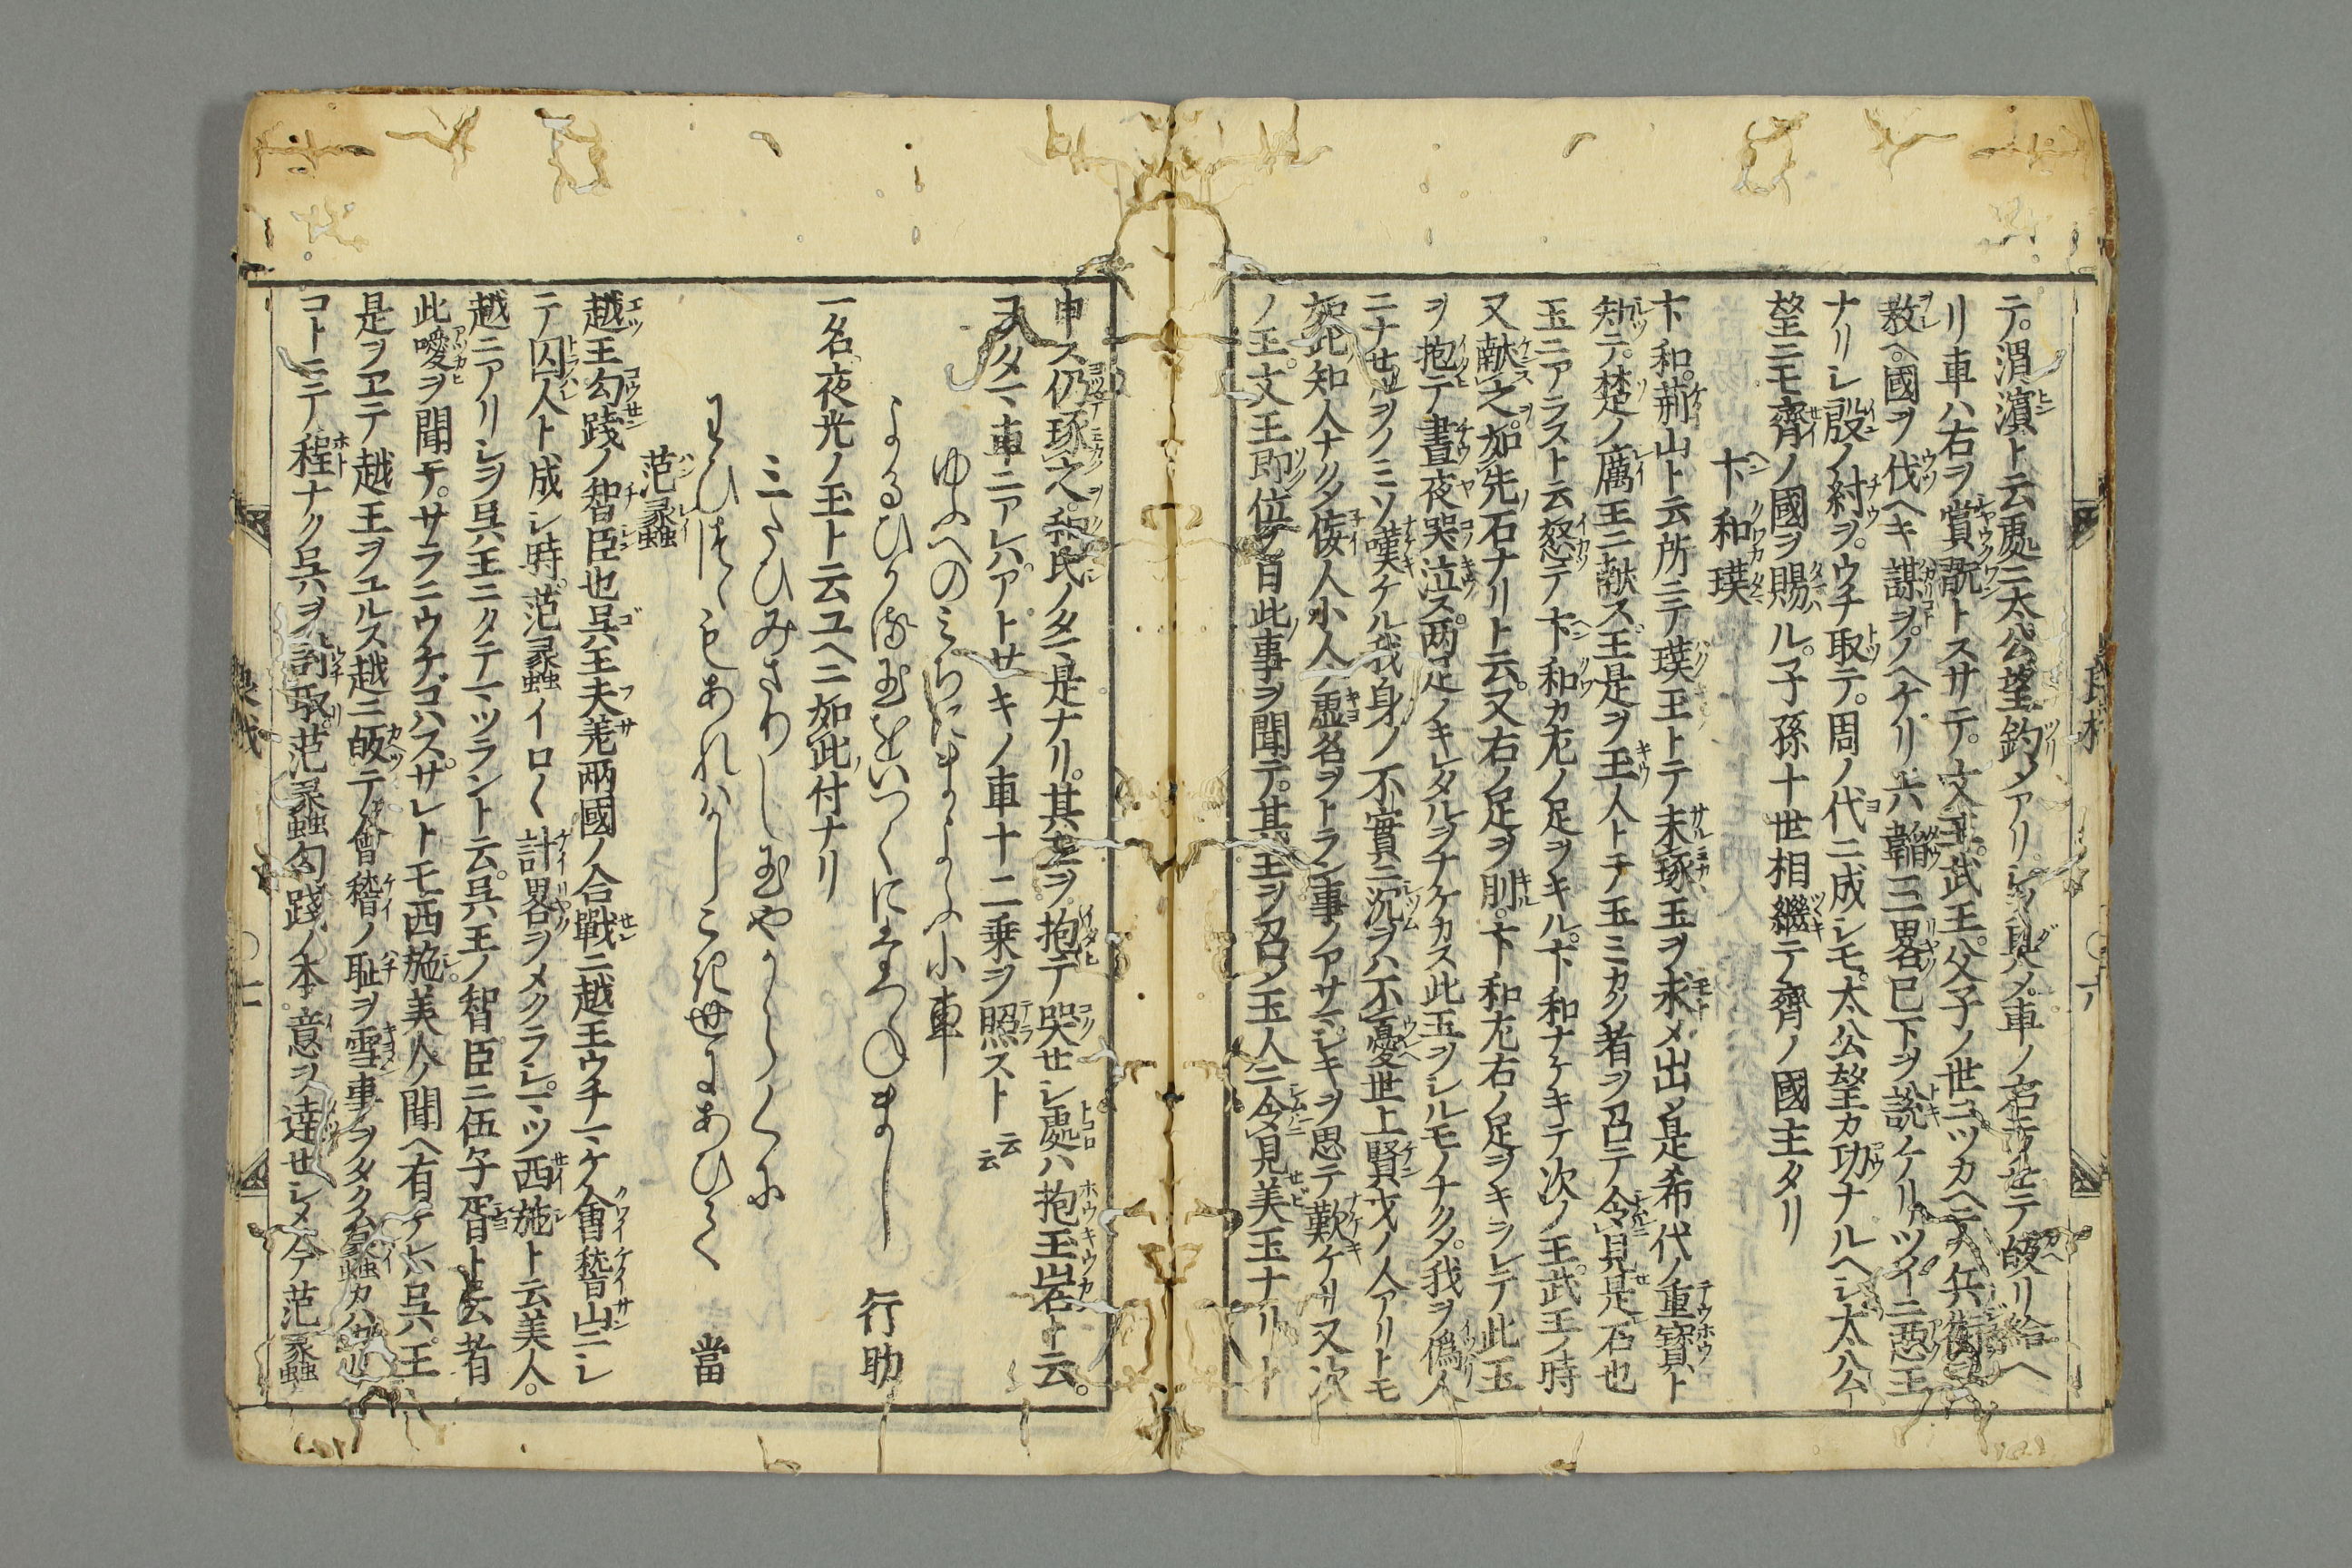 テ渭濱ト云處ニ太公望釣メアリシソ具メ車ノ右ニノセテ皈リ給ヘ
リ車ハ右ヲ賞翫トスサテ文王武王父子ノ世ニツカヘテ兵
教ヘ國ヲ伐ヘキ謀ヲノヘケリ六韜三畧已下ヲ説ケリツイニ惡王
ナリシ殷ノ紂ヲウチ取テ周ノ代ニ成シモ太公望カ功ナルヘシ太公
望ニモ齊ノ國ヲ賜ル子孫十世相繼テ齊ノ國主タリ
卞和璞
卞和荊山ト云所ニテ璞玉トテ未琢玉ヲ求メ出ソ是希代ノ重寳ト
知テ楚ノ厲王ニ献ス王是ヲ玉人トテ玉ミカク者ヲ召テ令見是石也
玉ニアラスト云怒テ卞和カ左ノ足ヲキル卞和ナケキテ次ノ王武王ノ時
又献之如先石ナリト云又右ノ足ヲ刖卞和左右ノ足ヲキラレテ此玉
ヲ抱テ晝夜哭泣ス両足ノキレタルヲナケカス此玉ヲシルモノナクメ我ヲ偽人
ニナセルヲノミソ嘆ケル我身ノ不實ニ沉ヲハ不憂世上賢才ノ人アリトモ
如此知人ナクメ侫人小人ノ虚名ヲトラン事ノアサマシキヲ思テ歎ケリ又次
ノ王文王即位ノ日此事ヲ聞テ其玉ヲ召ソ玉人ニ令見美玉ナリト
申ス仍琢之和氏ノタマ是ナリ其玉ヲ抱テ哭セシ處ハ抱玉岩ト云
ヨキタマ車ニアレハアトサキノ車十二乗ヲ照スト云云
ゆふへのみちにまよふ小車
よるひかる玉をいつくになつのまし 行助
一名夜光ノ玉ト云ユヘニ如此付ナリ
三たひみさりし玉やかしらくふ
わひはつるもあれはしこき世にあひて 當
范蠡
越王勾踐ノ智臣也呉王夫差両國ノ合戰ニ越王ウチマケ會稽山ニシ
テ囚人ト成シ時范蠡イロ〱計畧ヲメクラシマツ西施ト云美人
越ニアリシヲ呉王ニタテマツラント云呉王ノ智臣ニ伍子胥ト云者
此噯ヲ聞テサラニウケゴハスサレトモ西施美人ノ聞ヘ有ケレハ呉王
是ヲヱテ越王ヲユルス越ニ皈テ會稽ノ耻ヲ雪事ヲタクム范蠡カハカリ
コトニテ程ナク呉ヲ討取范蠡勾踐ノ本意ヲ達セシメ今范蠡